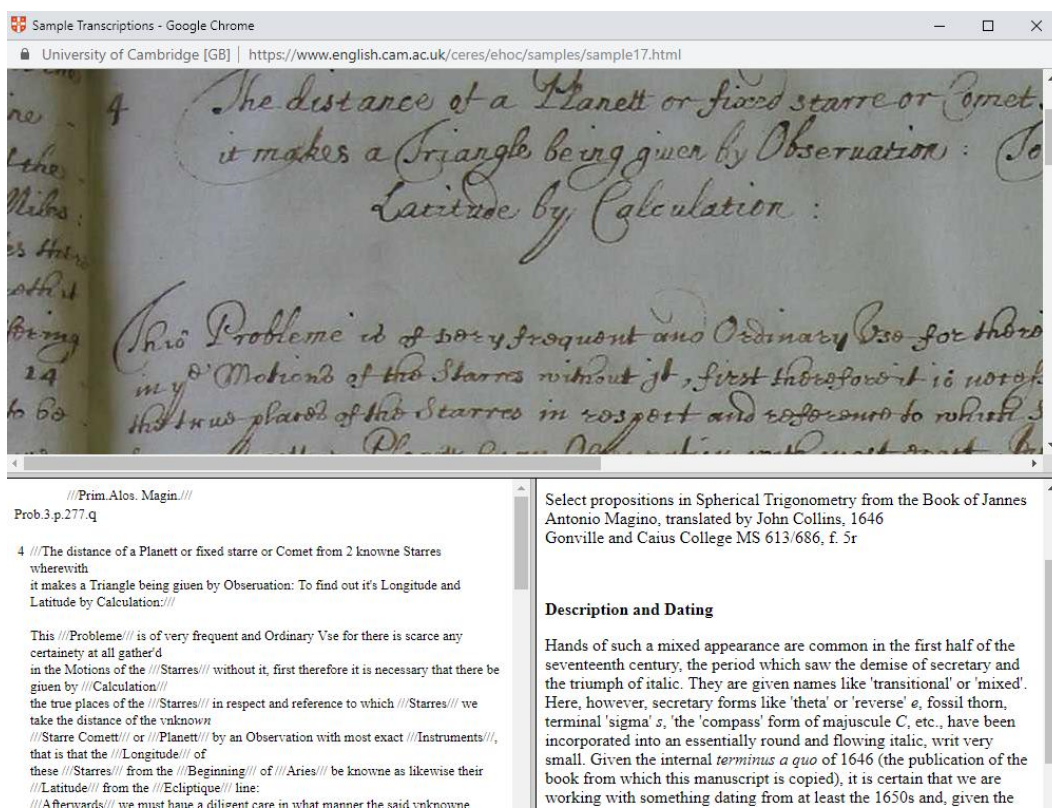 Sample Transcriptions - Google Chrome
University of Cambridge [GB] | https://www.english.cam.ac.uk/ceres/ehoc/samples/sample17.html
4 The distance of a Planett or fixed starre or Comet
it makes a Triangle being giuen by Obseruation: To
Latitude by Calculation:
the
Miles:
14
to be
This Probleme is of very frequent and Ordinary Vse for there
in ye Motions of the Starres without jt, first therefore it is
the true places of the Starres in respect and reference to which
///Prim.Alos. Magin.///
Prob.3.p.277.q
4 ///The distance of a Planett or fixed starre or Comet from 2 knowne Starres
wherewith
it makes a Triangle being giuen by Obseruation: To find out it's Longitude and
Latitude by Calculation:///
This ///Probleme/// is of very frequent and Ordinary Vse for there is scarce any
certainety at all gather'd
in the Motions of the ///Starres/// without it, first therefore it is necessary that there be
giuen by ///Calculation///
the true places of the ///Starres/// in respect and reference to which ///Starres/// we
take the distance of the vnknown
///Starre Comett/// or ///Planett/// by an Observation with most exact ///Instruments///,
that is that the ///Longitude/// of
these ///Starres/// from the ///Beginning/// of ///Aries/// be knowne as likewise their
///Latitude/// from the ///Ecliptique/// line:
///Afterwards/// we must haue a diligent care in what manner the said vnknowne
Select propositions in Spherical Trigonometry from the Book of Jannes
Antonio Magino, translated by John Collins, 1646
Gonville and Caius College MS 613/686, f. 5r
Description and Dating
Hands of such a mixed appearance are common in the first half of the
seventeenth century, the period which saw the demise of secretary and
the triumph of italic. They are given names like 'transitional' or 'mixed'.
Here, however, secretary forms like 'theta' or 'reverse' e, fossil thorn,
terminal 'sigma' s, 'the 'compass' form of majuscule C, etc., have been
incorporated into an essentially round and flowing italic, writ very
small. Given the internal terminus a quo of 1646 (the publication of the
book from which this manuscript is copied), it is certain that we are
working with something dating from at least the 1650s and, given the